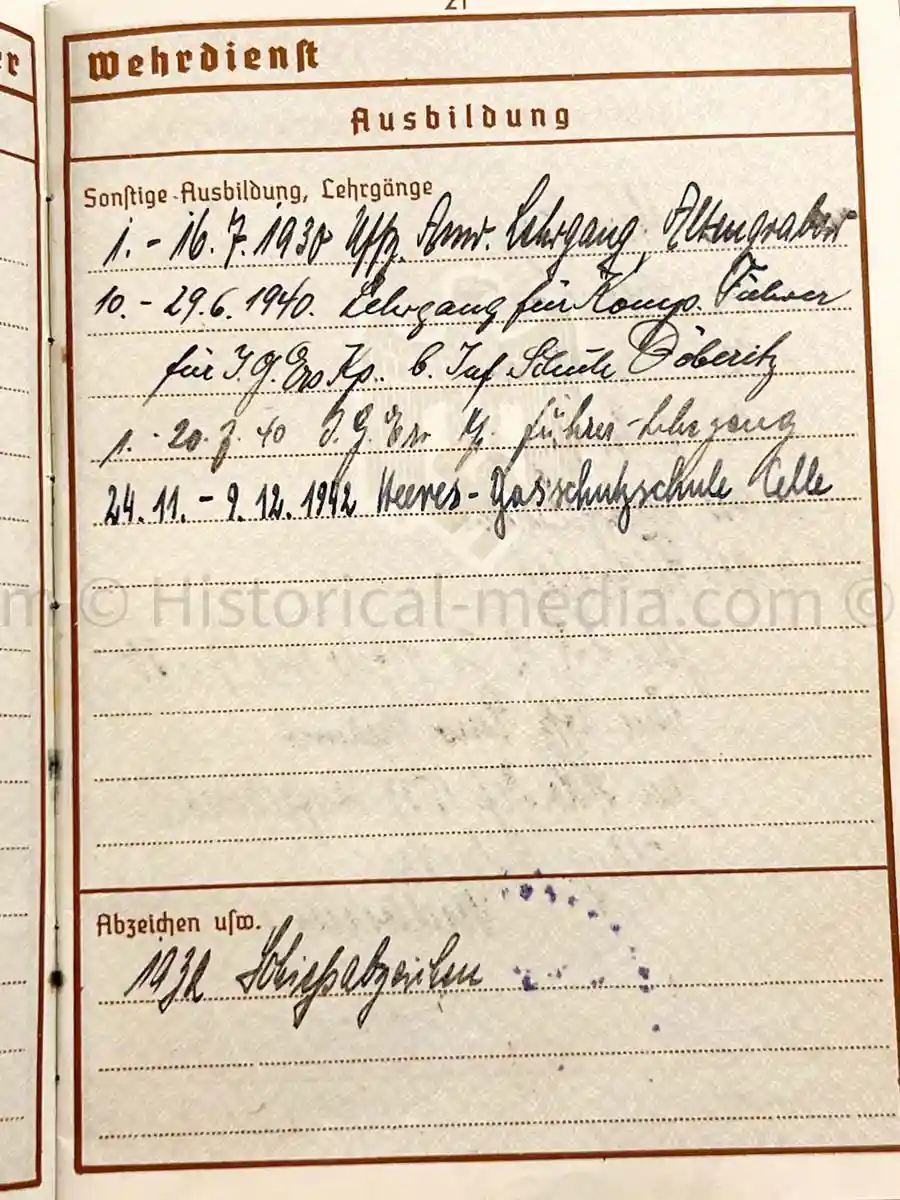 21
er
Wehrdienst
Ausbildung
Sonstige Ausbildung, Lehrgänge
1. - 16. 7. 1930 Uffz. Anw. Lehrgang, Altengrabow
10. - 29. 6. 1940. Lehrgang für Komp. Führer
für I. G. Ers Kp. b. Inf Schule Döberitz
1. - 20. 7. 40 I. G. Ers. Kp. führer-Lehrgang
24. 11. - 9. 12. 1942 Heeres-Gasschutzschule Celle
m © Historical-media.com ©
Abzeichen usw.
Schießabzeichen